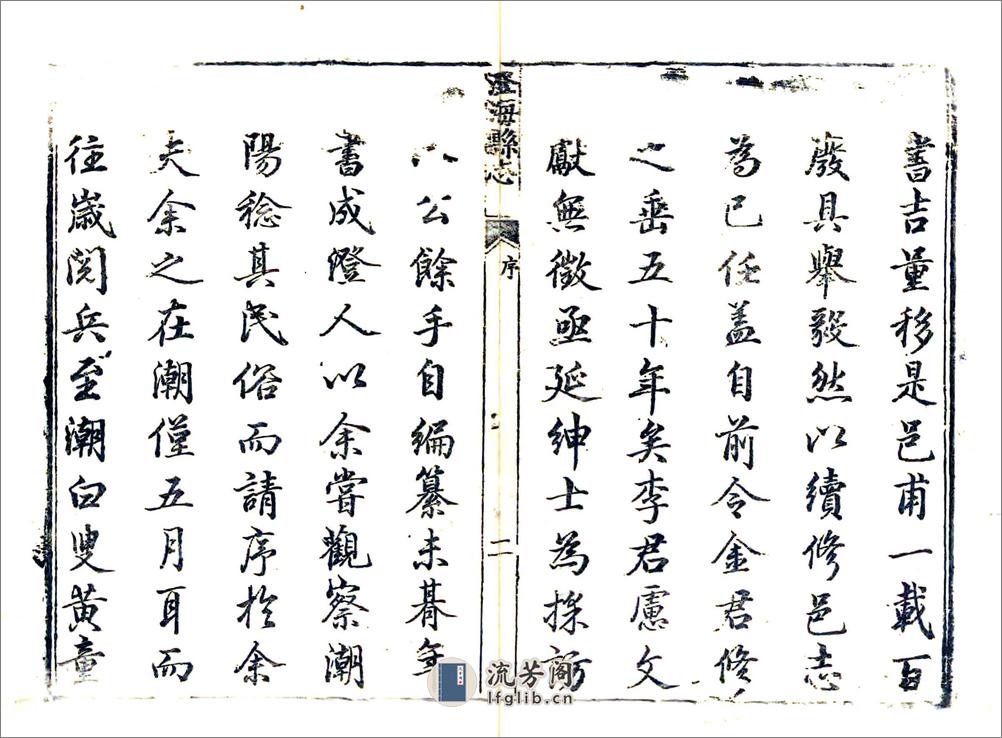 書吉量移是邑甫一載百
廢具舉毅然以續修邑志
為己任蓋自前令金君修
之垂五十年矣李君慮文
獻無徵亟延紳士為採訪
澄海縣志
序
二
公餘手自編纂未朞年
書成澄人以余嘗觀察潮
陽稔其民俗而請序於余
夫余之在潮僅五月耳而
往歲閱兵至潮白叟黃童
流芳阁
lfglib.cn